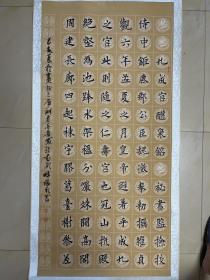 九成宮醴泉銘秘書監撿校
侍中鉅鹿郡公臣魏徵奉勑撰維貞
觀六年孟夏之月皇帝避暑乎九成
之宮此則隨之仁壽宮也冠山抗殿
絕壑為池跨水架楹分巖竦闕高閣
周建長廊四起棟宇膠葛臺榭參差